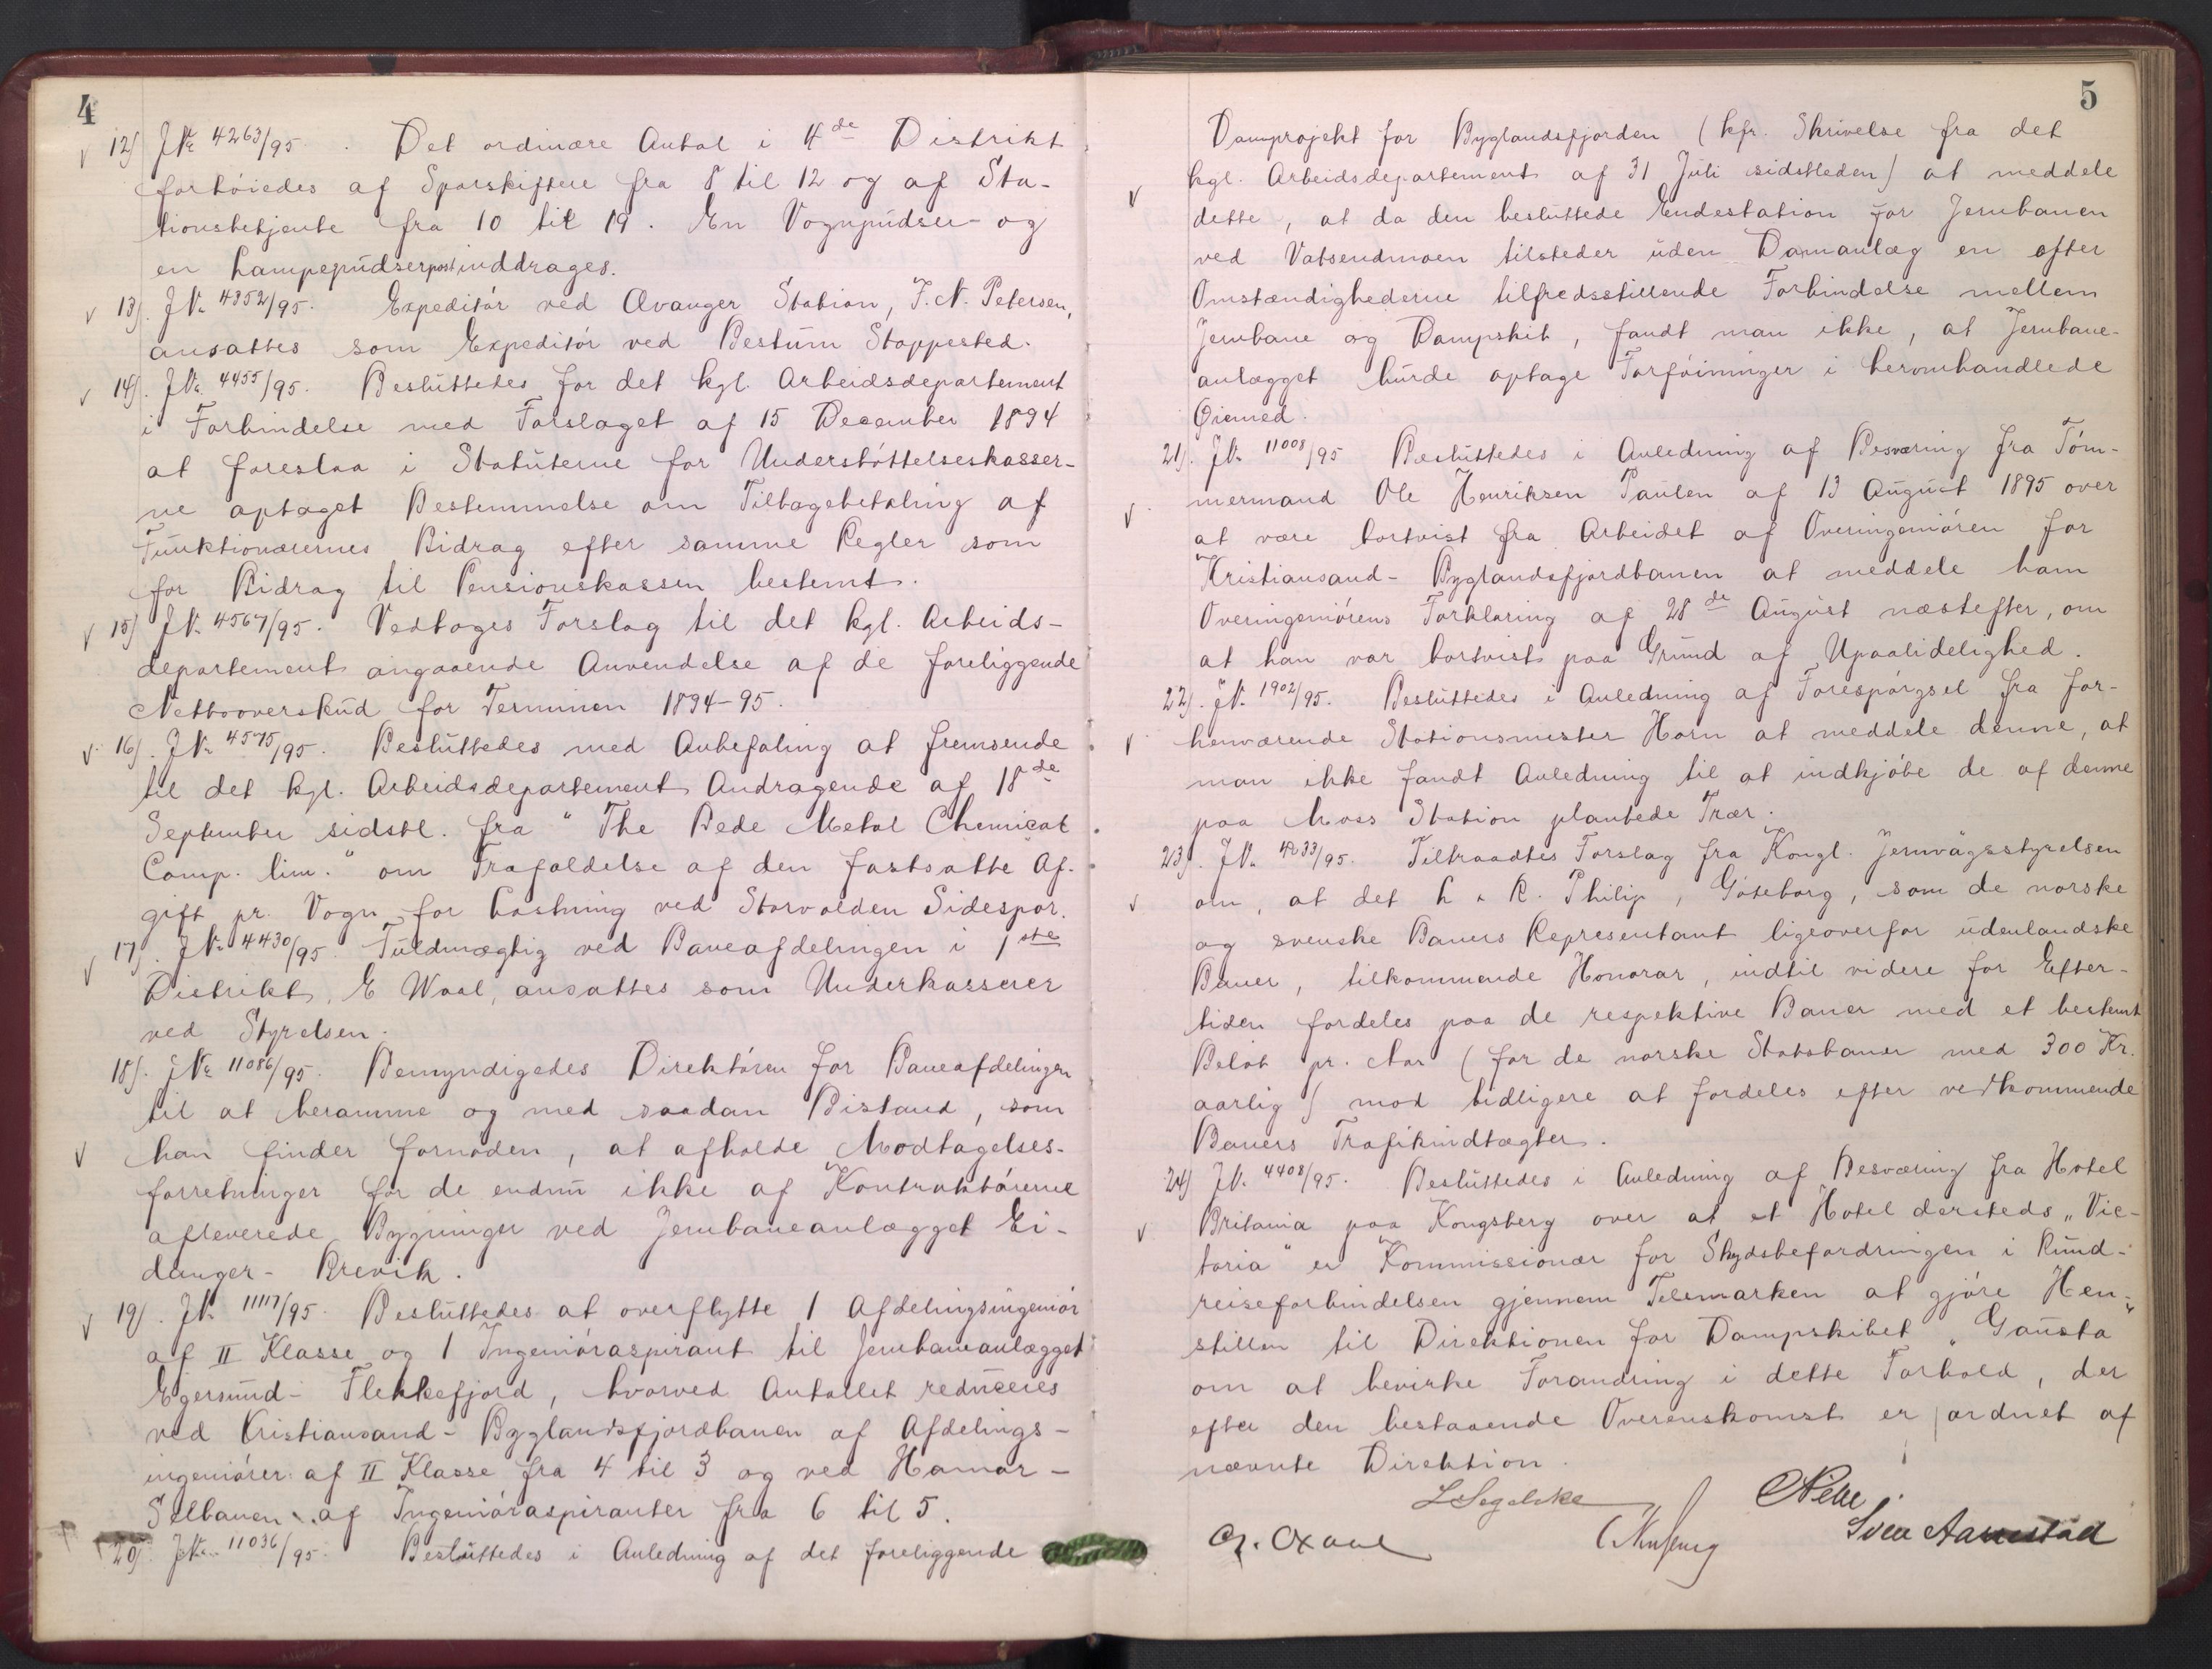 4
12) J№ 4263/95. Det ordinære Antal i 4de Distrikt
forhöiedes af Sporskiftere fra 8 til 12 og af Sta-
tionsbetjente fra 10 til 19. En Vognpudser- og
en Lampepudserpost inddrages.
13). J№ 4352/95. Expeditör ved Ævanger Station, J. N. Petersen,
ansattes som Expeditör ved Bestum Stoppested.
14). J№ 4455/95. Besluttedes for det kgl. Arbeidsdepartement
i Forbindelse med Forslaget af 15 December 1894
at foreslaa i Statuterne for Understöttelseskasser-
ne optaget Bestemmelse om Tilbagebetaling af
Funktionærernes Bidrag efter samme Regler som
for Bidrag til Pensionskassen bestemt.
15) J№ 4567/95. Vedtoges Forslag til det kgl. Arbeids-
departement angaaende Anvendelse af de foreliggende
Nettooverskud for Terminen 1894-95.
16). J№ 4575/95. Besluttedes med Anbefaling at fremsende
til det kgl. Arbeidsdepartement Andragende af 18de
September sidstl. fra "The Bede Metal Chemical
Comp. lim." om Frafaldelse af den fastsatte Af-
gift pr. Vogn for Lastning ved Storvolden Sidespor.
17). J№ 4430/95. Fuldmægtig ved Baneafdelingen i 1ste
Distrikt, E Waal, ansattes som Underkasserer
ved Styrelsen.
18). J№ 11086/95. Bemyndigedes Direktören for Baneafdelingen
til at beramme og med saadan Bistand, som
han finder fornöden, at afholde Modtagelses-
forretninger for de endnu ikke af Kontraktörerne
afleverede Bygninger ved Jernbaneanlægget Ei-
danger- Brevik.
19). J№ 11117/95. Besluttedes at overflytte 1 Afdelingsingeniör
af II Klasse og 1 Ingeniöraspirant til Jernbaneanlægget
Egersund- Flekkefjord, hvorved Antallet reduceres
ved Kristiansand- Byglandsfjordbanen af Afdelings-
ingeniörer af II Klasse fra 4 til 3 og ved Hamar-
Selbanen af Ingeniöraspiranter fra 6 til 5.
20). J№ 11036/95. Besluttedes i Anledning af det foreliggende
5
Damprojekt for Byglandsfjorden (kfr. Skrivelse fra det
kgl. Arbeidsdepartement af 31 Juli sidstleden) at meddele
dette, at da den besluttede Endestation for Jernbanen
ved Vatsendmoen tilsteder uden Damanlæg en efter
Omstændighederne tilfredsstillende Forbindelse mellem
Jernbane og Dampskib, fandt man ikke, at Jernbane-
anlægget burde optage Forföininger i heromhandlede
Øiemed.
21). J№ 11008/95 Besluttedes i Anledning af Besværing fra Töm-
mermand Ole Henriksen Paulen af 13 August 1895 over
at være bortvist fra Arbeidet af Overingeniören for
Kristiansand- Byglandsfjordbanen at meddele ham
Overingeniörens Forklaring af 28de August næstefter, om
at han var bortvist paa Grund af Upaalidelighed.
22). J№ 1902/95. Besluttedes i Anledning af Forespörgsel fra for-
henværende Stationsmester Horn at meddele denne, at
man ikke fandt Anledning til at indkjöbe de af denne
paa Moss Station plantede Trær.
23). J№ 4233/95. Tiltraadtes Forslag fra Kongl. Jernvägsstyrelsen
om, at det L & R. Philip, Göteborg, som de norske
og svenske Baners Representant ligeoverfor udenlandske
Baner, tilkommende Honorar, indtil videre for Efter-
tiden fordeles paa de respektive Baner med et bestemt
Belöb pr. Aar (for de norske Statsbaner med 300 Kr.
aarlig) mod tidligere at fordeles efter vedkommende
Baners Trafikindtægter.
24) J№ 4408/95. Besluttedes i Anledning af Besværing fra Hotel
Britania paa Kongsberg over at et Hotel dersteds „Vic-
toria" er Kommissionær for Skydsbefordringen i Rund-
reiseforbindelsen gjennem Telemarken at gjöre Hen-
stillen til Direktionen for Dampskibet „Gausta"
om at bevirke Forandring i dette Forhold, der
efter den bestaaende Overenskomst er ordnet af
nævnte Direktion.
L Segelcke
Sven Aarrestad